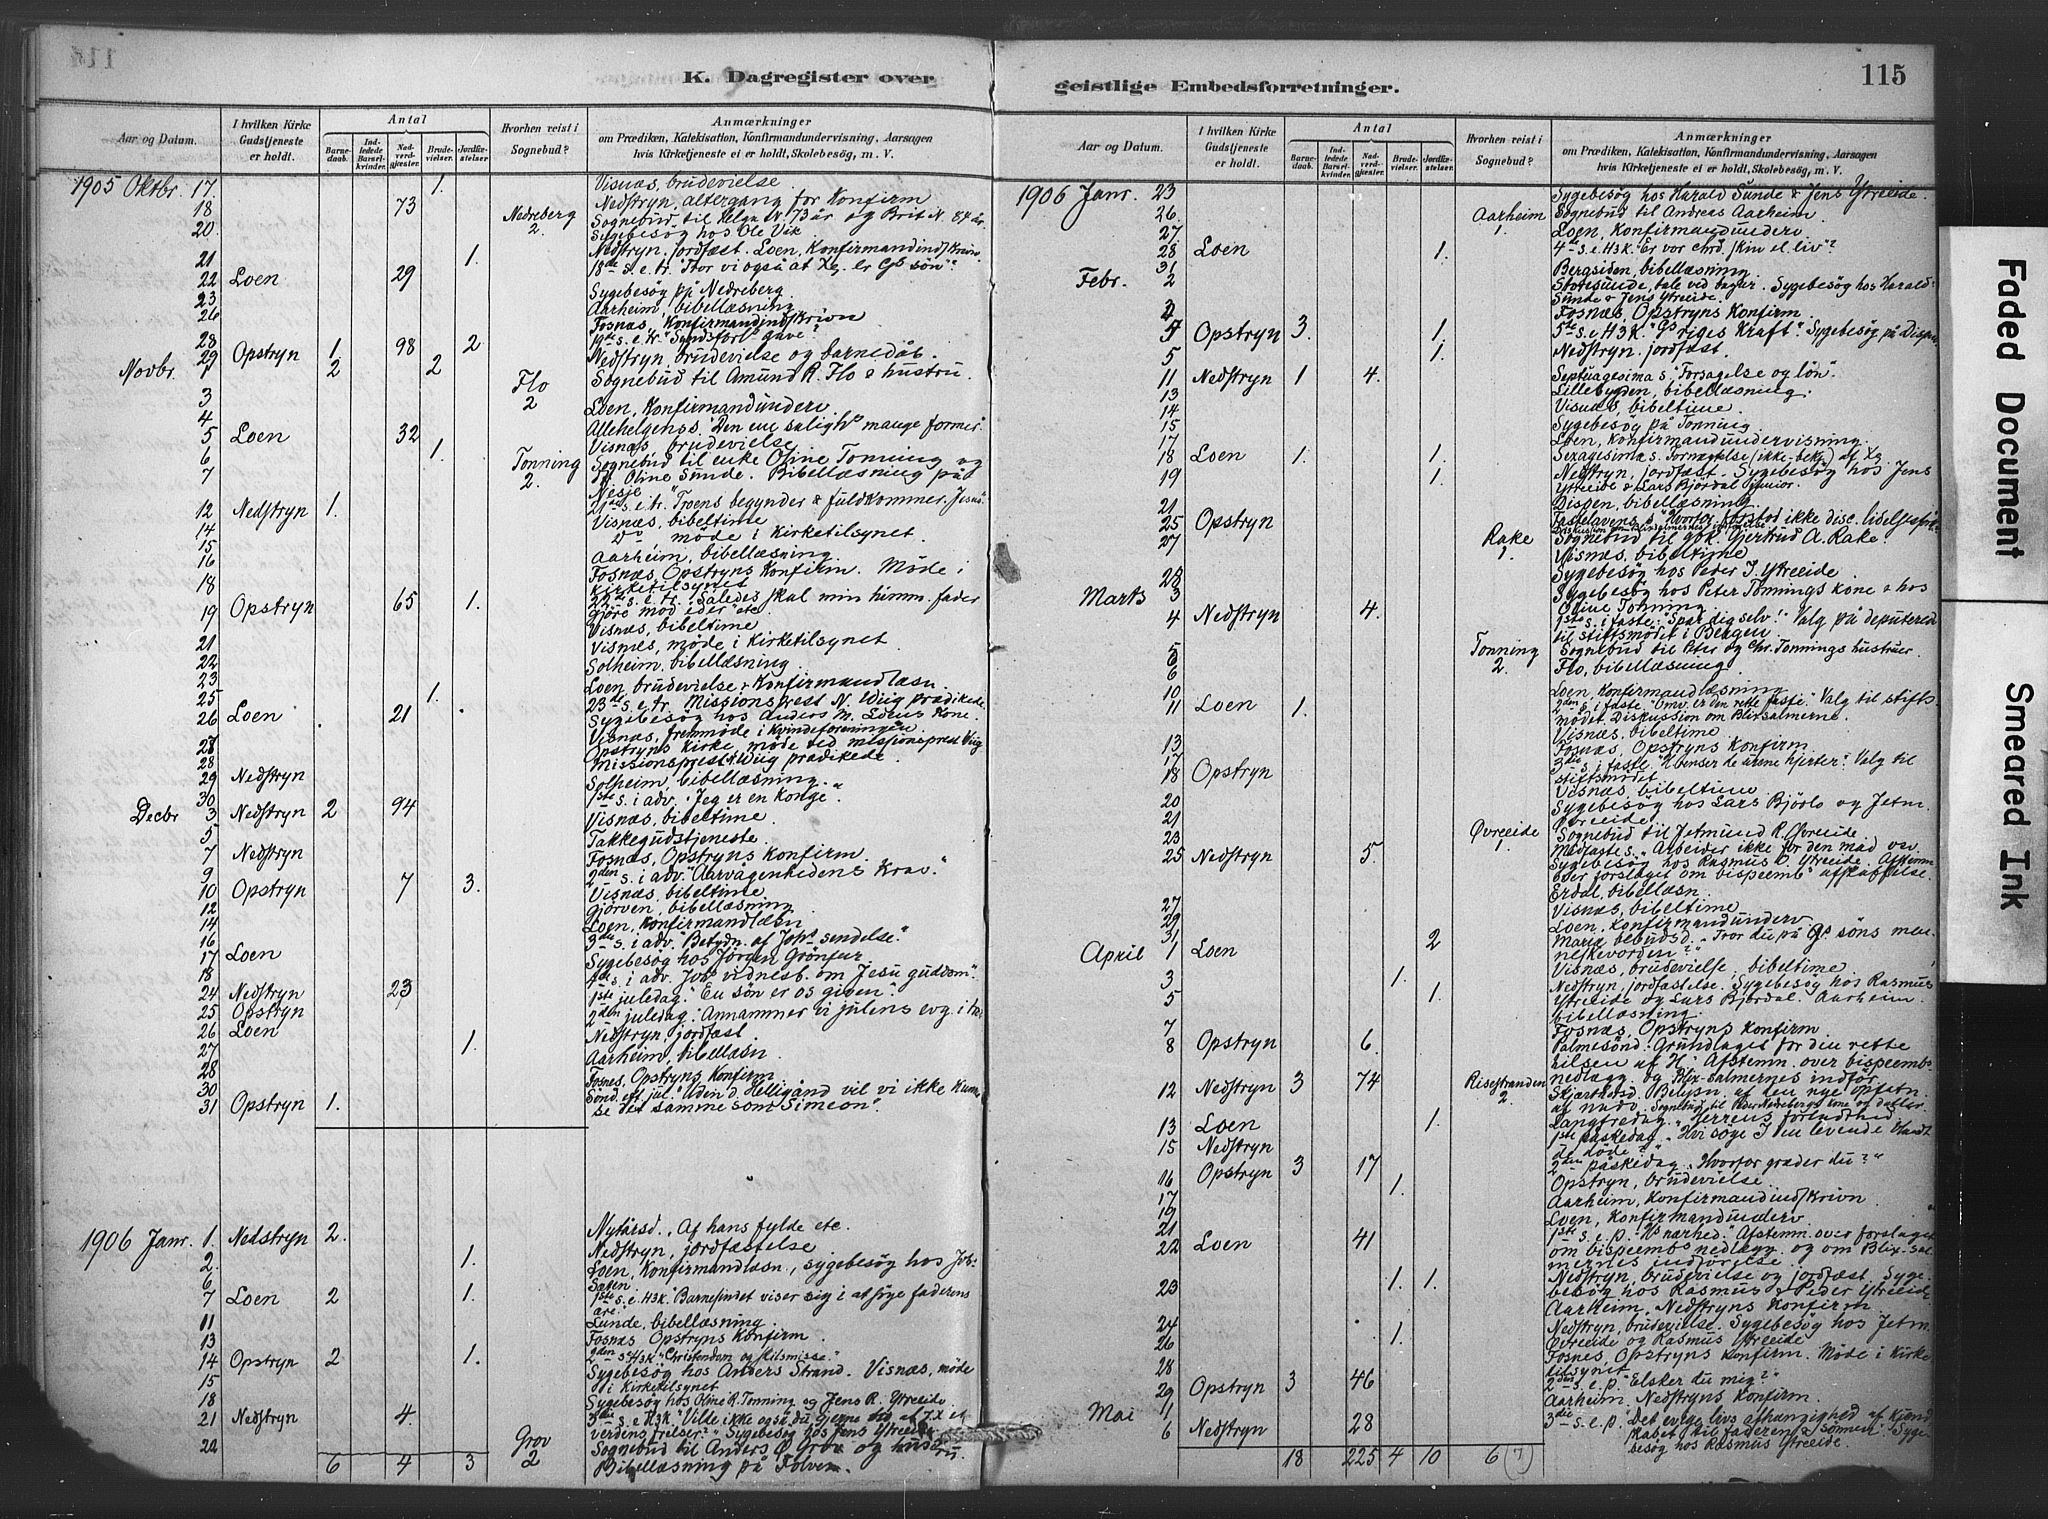 K. Dagregister over
geistlige Embedsforretninger.
115
Aar og Datum.
I hvilken Kirke Gudstjeneste er holdt.
Antal
Barnedaab.
Indledede Barselkvinder.
Nadverdgjæster.
Brudevielser.
Jordfæstelser.
Hvorhen reist i Sognebud?
Anmærkninger
om Prædiken, Katekisation, Konfirmandundervisning, Aarsagen
hvis Kirketjeneste ei er holdt, Skolebesøg, m. V.
1905 Oktbr. 17 1. Visnæs, brudevielse.
18 73 Nedstryn, altergang for Konfirm
20 Nedreberg 2. Sognebud til Helga N. 73 år og Brit N. 84 år.
Sygebesøg hos Ole Vik.
21 1. Nedstryn, jordfæst. Loen, Konfirmandindskrivn.
22 Loen 29 18de s. e. tr. "Tror vi også at Xs. er Gs søn"?
23 Sygebesøg på Nedreberg
26 Aarheim, bibellæsning
28 Fosnæs, Konfirmandindskrivn
29 Opstryn 1 98 2 19de s. e. tr. "Syndsforl. gave"?
Novbr. 1 2 2 Nedstryn, brudevielse og barnedåb.
3 Flo 2 Sognebud til Amund R. Flo & hustru.
4 Loen, Konfirmandunderv.
5 Loen 32 Allehelgenss. "Den ene saligh. mange former."
6 1. Visnæs brudevielse
7 Tonning 2. Sognebud til enke Oline Tonning og
Oline Sunde. Bibellæsning på
Nesje
12 Nedstryn 1. 21de s. e. tr. "Troens begynder & fuldkommer. Jesus"
14 Visnæs, bibeltime
15 do møde i Kirketilsynet.
16 Aarheim, bibellæsning.
18 Fosnæs, Opstryns Konfirm. Møde i
Kirketilsynet
19 Opstryn 65 1. 22de s. e. tr. "Således skal min himm. fader
gjøre mod eder" etc.
21 Visnæs, bibeltime
22 Visnæs, møde i Kirketilsynet
23 Solheim, bibellæsning
25 1. Loen, brudevielse, Konfirmandlæsn.
26 Loen 21 23de s. e. tr. Missionsprest N. Wiig prædikede
Sygebesøg hos Anders M. Loens Kone.
27 Visnæs, fremmøde i Kvindeforeningen
28 Opstryns Kirke, møde ved missionsprest Wiig
29 Nedstryn Missionsprest Wiig prædikede.
30 Solheim, bibellæsning.
Decbr 3 Nedstryn 2 94 1ste s. i adv. "Jeg er en Konge".
5 Visnæs, bibeltime.
7 Nedstryn Takkegudstjeneste.
9 Fosnæs, Opstryns Konfirm.
10 Opstryn 7 3. 2den s. i adv. "Aarvågenhedens Krav."
12 Visnæs, bibeltime
14 Gjørven, bibellæsning
16 Loen, Konfirmandlæsn
17 Loen 3die s. i adv. "Betydn. af Johs sendelse."
18 Sygebesøg hos Jørgen Grønfur
24 Nedstryn 23 4de s. i adv. Johs vidnesb. om Jesu guddom".
25 Opstryn 1ste juledag. "En søn er os given".
26 Loen 2den juledag. "Annammer vi julens evg. i tro"
27 1. Nedstryn, jordfæst.
28 Aarheim, bibellæsn.
30 Fosnes, Opstryns Konfirm.
31 Opstryn 1. Sønd. eft. jul. "Uden d. Helligånd vil vi ikke kunne
se det samme som Simeon".
1906 Janr. 1. Nedstryn 2. Nytårsd., Af hans fylde etc.
2. 1. Nedstryn, jordfæstelse
6 Loen, Konfirmandlæsn., sygebesøg hos Joh.
7 Loen 2 1. 1ste s. e. H3K. "Barnesindet viser sig i at søge faderens
ære."
11 Sunde, bibellæsning.
13 Fosnæs Opstryns Konfirm.
14 Opstryn 2 1. 2den s. H3K "Christendom og skilsmisse"
15 Sygebesøg hos Anders Strand. Visnæs, møde
i Kirketilsynet
18 Sygebesøg hos Oline R. Tonning og Jens R. Ytreeide
21 Nedstryn 4. 3die s. e. H3K. "Vilde ikke også du gjerne
verdens frelser?" Sygebesøg hos Jens Ytreeide
22 Grov 2 Sognebud til Anders Ø Grov og hustru.
6 4 3 Bibellæsning på Folven.
1906 Janr. 23 Sygebesøg hos Harald Sunde & Jens Ytreeide.
26. Aarheim 1. Sognebud til Andreas Aarheim.
27 Loen, Konfirmandunderv
28 Loen 1. 4de s. e. H3K. "Er vor chrd. skin el. liv"?
31 Bergsiden, bibellæsning.
Febr. 2 Storesunde, tale ved bryllup. Sygebesøg hos Harald
Sunde & Jens Ytreeide.
3 Fosnæs, Opstryns Konfirm.
4 Opstryn 3. 1. 5te s. e. H3K. "Gs riges Kraft". Sygebesøg på
5 1. Nedstryn, jordfæst.
11 Nedstryn 1 4. Septuagesima s. "Forsagelse og løn".
13 Lillebygden, bibellæsning.
14 Visnæs, bibeltime.
15 Sygebesøg på Tonning.
17 Loen, Konfirmandundervisning.
18 Loen 1. 1. Sexagesimas. Fornægtelse (ikke-bekj.) af Xs.
19 1. Nedstryn, jordfæst. Sygebesøg hos Jens
Ytreeide & Lars Bjørdal junior.
21 Disgen, bibellæsning.
25 Opstryn Fastelavens s. "Hvorfor forstod ikke disc. lidelsesforu."
Diskussion om Blixsalmernes indførelse.
27 Rake 1. Sognebud til gbk. Gjertrud A. Rake.
Visnæs, bibeltime
28 Sygebesøg hos Peder J. Ytreeide.
Marts 3 Sygebesøg hos Peter Tonnings kone & hos
Oline Tonning
4 Nedstryn 4. 1ste s. i faste: "Spar dig selv!" Valg på deputered
til stiftsmødet i Bergen
5 Tonning 2. Sognebud til Peter og Chr. Tonnings hustruer.
6 Flo, bibellæsning
10 Loen, Konfirmandlæsning
11 Loen 1. 2den s. i faste. "Omv. er den rette faste." Valg til stifts-
mødet. Diskussion om Blixsalmerne.
13 Visnæs, bibeltime.
17 Fosnæs, Opstryns Konfirm
18 Opstryn 3die s. i faste "Ubenser de urene hjerter". Valg til
stiftsmødet
20 Visnæs, bibeltime
21 Sygebesøg hos Lars Bjørlo og Jetm.
Øvreeide
23 Øvreeide 1. Sognebud til Jetmund R. Øvreeide.
25 Nedstryn 5. Midfastes. "Arbeider ikke for den mad osv
Sygebesøg hos Rasmus O. Ytreeide. Afstemn
over forslaget om bispeembs afskaffelse.
27 Erdal, bibellæsn.
29 Visnæs, bibeltime
31 Loen, Konfirmandunderv
April 1 Loen 2 Mariæ bebudsd. "Tror du på Gs søns men-
neskevorden?"
3 1. Visnæs, brudevielse, bibeltime
5 1. Nedstryn, jordfæstelse. Sygebesøg hos Rasmus
Ytreeide og Lars Bjørdal. Aarheim.
bibellæsning.
7 Fosnæs, Opstryns Konfirm.
8 Opstryn 6. Palmesønd. Grundlaget for den rette
hilsen af H. Afstemn. over bispeembs
nedlægg. og Blix-salmernes indfør.
12 Nedstryn 3 74 Risestranden 2. Skjærthorsd. Belysn. af den nye pagten
af nadv. Sognebud til Peder Nedrebergs kone og datter
13 Loen 1. Langfredag. "Herrens forladthed
15 Nedstryn 1ste påskedag. "Hvi søge I den levende blandt
de døde"?
16 Opstryn 3 17 2den påskedag. "Hvorfor græder du?"
1. Opstryn, brudevielse.
17 Aarheim, Konfirmandindskrivn
19 Loen, Konfirmandunderv
21
22 Loen 41 1ste s. e. p. "Hs nærhed". Afstemn. over forslaget
om bispeembs nedlægg. og om Blix-sal-
mernes indførelse.
23 1. 1. Nedstryn, brudevielse og jordfæst. Syge-
besøg hos Rasmus & Peder Ytreeide.
Aarheim, Nedstryns Konfirm
24 Nedstryn, brudevielse. Sygebesøg hos Jetm.
26 1. Øvreeide og Rasmus Ytreeide
28 Fosnes, Opstryns Konfirm. Møde i Kirke-
tilsynet
29 Opstryn 3 46 2den s. e. p. "Elsker du mig?"
Mai 1 Aarheim, Nedstryns Konfirm.
6 Nedstryn 28 3die s. e. p. "Det evige livs afhængighed af Kjend-
skabet til faderen & sønnen". Syge-
besøg hos Rasmus Ytreeide.
18 225 4 10 6 (7)
Faded Document
Smeared Ink